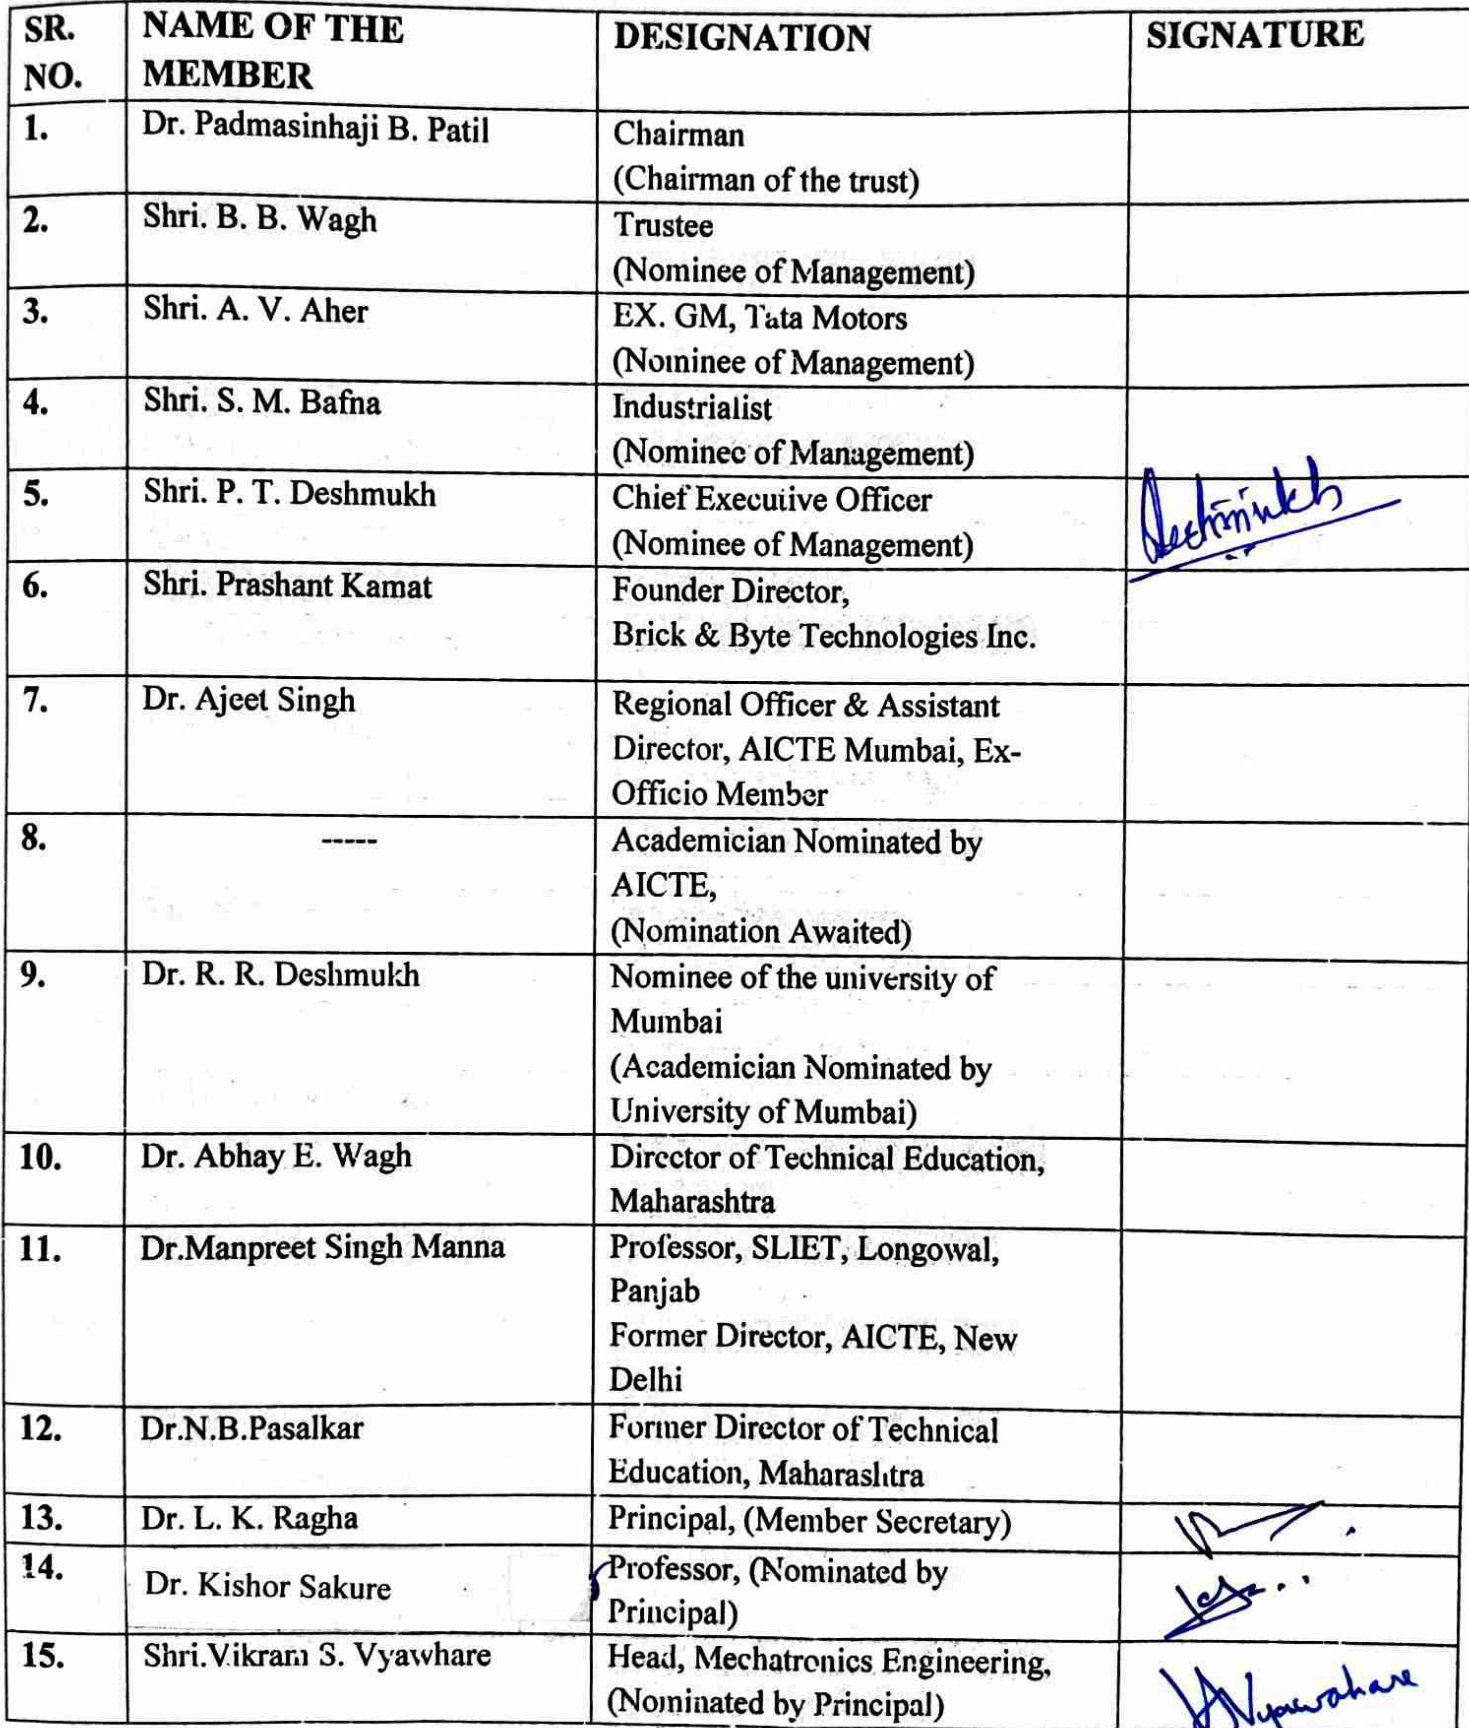 SR. NO. NAME OF THE MEMBER DESIGNATION SIGNATURE
1. Dr. Padmasinhaji B. Patil Chairman
(Chairman of the trust)
2. Shri. B. B. Wagh Trustee
(Nominee of Management)
3. Shri. A. V. Aher EX. GM, Tata Motors
(Nominee of Management)
4. Shri. S. M. Bafna Industrialist
(Nominee of Management)
5. Shri. P. T. Deshmukh Chief Executive Officer
(Nominee of Management)
6. Shri. Prashant Kamat Founder Director,
Brick & Byte Technologies Inc.
7. Dr. Ajeet Singh Regional Officer & Assistant
Director, AICTE Mumbai, Ex-
Officio Member
8. ----- Academician Nominated by
AICTE,
(Nomination Awaited)
9. Dr. R. R. Deshmukh Nominee of the university of
Mumbai
(Academician Nominated by
University of Mumbai)
10. Dr. Abhay E. Wagh Director of Technical Education,
Maharashtra
11. Dr.Manpreet Singh Manna Professor, SLIET, Longowal,
Panjab
Former Director, AICTE, New
Delhi
12. Dr.N.B.Pasalkar Former Director of Technical
Education, Maharashtra
13. Dr. L. K. Ragha Principal, (Member Secretary)
14. Dr. Kishor Sakure Professor, (Nominated by
Principal)
15. Shri.Vikram S. Vyawhare Head, Mechatronics Engineering,
(Nominated by Principal)